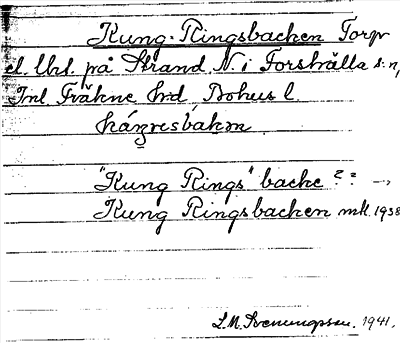 Kung-Ringsbacken Torp
el. lht. på Strand N. i Forshälla s:n,
Inl Fräkne hrd, Bohus l.
káŋresbakɷn
"Kung Rings" backe ??
Kung Ringsbacken mtl. 1938
L.M. Svenungsson. 1941.